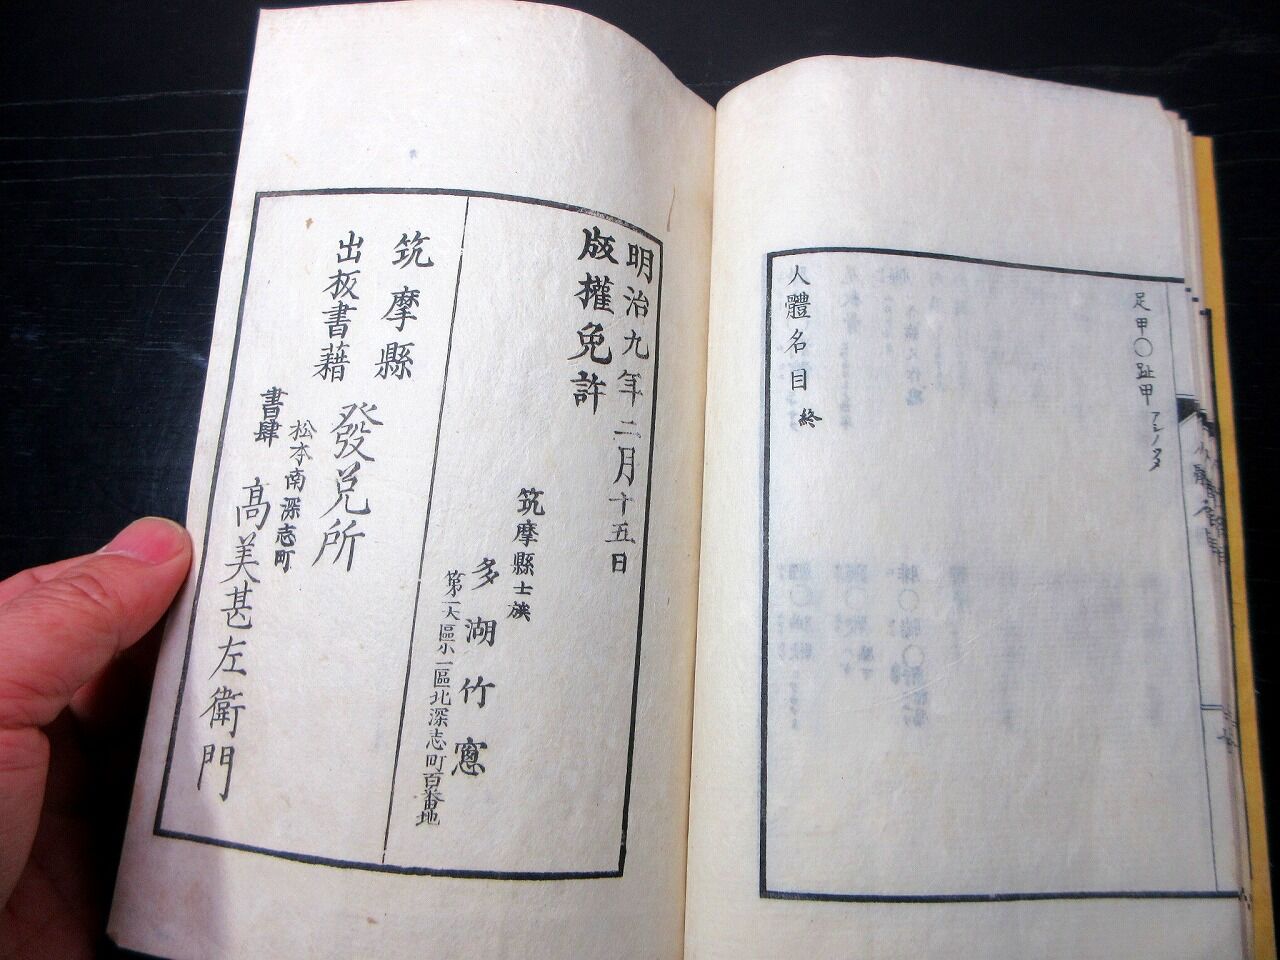 足甲〇趾甲アシノタ
人體名目終
明治九年二月十五日
版權免許
筑摩縣士族
多湖竹窓
第一大區小一區北深志町百番地
筑摩縣
出板書藉
發兌所
松本南深志町
書肆
高美甚左衛門